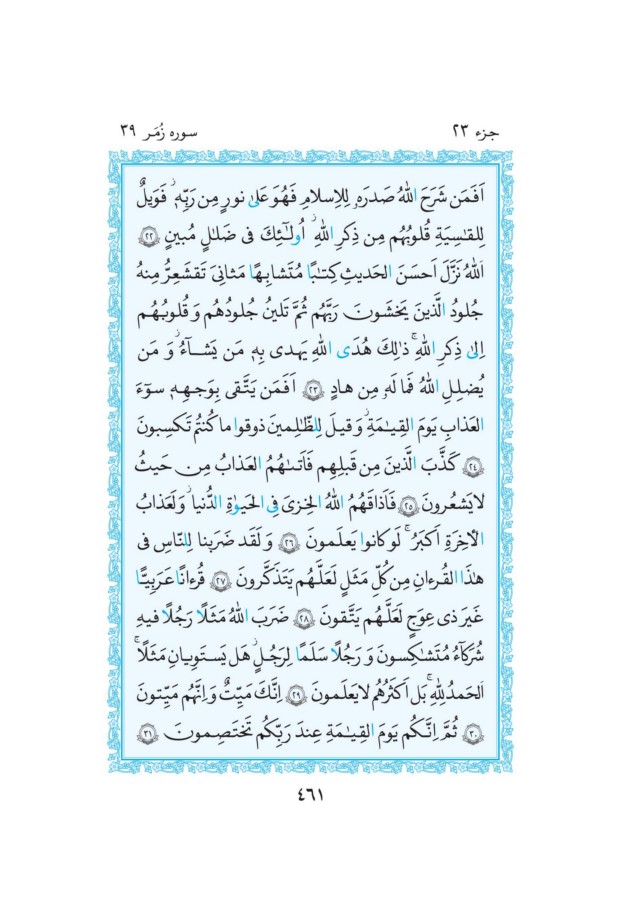 جزء ٢٣
سوره زُمَر ٣٩
اَفَمَن شَرَحَ اللهُ صَدرَه لِلاِسلامِ فَهُوَ عَلىٰ نورٍ مِن رَبِّه ۚ فَوَيلٌ
لِلقٰسِيَةِ قُلوبُهُم مِن ذِكرِ اللهِ ۚ اُولٰٓئِكَ فى ضَلٰلٍ مُبينٍ ٢٢
اَللهُ نَزَّلَ اَحسَنَ الحَديثِ كِتٰبًا مُتَشابِهًا مَثانِىَ تَقشَعِرُّ مِنهُ
جُلودُ الَّذينَ يَخشَونَ رَبَّهُم ثُمَّ تَلينُ جُلودُهُم وَ قُلوبُهُم
اِلىٰ ذِكرِ اللهِ ۚ ذٰلِكَ هُدَى اللهِ يَهدى بِه مَن يَشآءُ ۚ وَ مَن
يُضلِلِ اللهُ فَما لَه مِن هادٍ ٢٣ اَفَمَن يَتَّقى بِوَجهِه سوٓءَ
العَذابِ يَومَ القِيٰمَةِ ۚ وَ قيلَ لِلظّٰلِمينَ ذوقوا ما كُنتُم تَكسِبونَ
٢٤ كَذَّبَ الَّذينَ مِن قَبلِهِم فَاَتىٰهُمُ العَذابُ مِن حَيثُ
لا يَشعُرونَ ٢٥ فَاَذاقَهُمُ اللهُ الخِزىَ فِى الحَيوٰةِ الدُّنيا ۖ وَ لَعَذابُ
الأخِرَةِ اَكبَرُ ۚ لَو كانوا يَعلَمونَ ٢٦ وَ لَقَد ضَرَبنا لِلنّاسِ فى
هٰذَا القُرءانِ مِن كُلِّ مَثَلٍ لَعَلَّهُم يَتَذَكَّرونَ ٢٧ قُرءانًا عَرَبِيًّا
غَيرَ ذى عِوَجٍ لَعَلَّهُم يَتَّقونَ ٢٨ ضَرَبَ اللهُ مَثَلًا رَجُلًا فيهِ
شُرَكآءُ مُتَشٰكِسونَ وَ رَجُلًا سَلَمًا لِرَجُلٍ هَل يَستَوِيانِ مَثَلًا ۚ
اَلحَمدُ لِلّٰهِ ۚ بَل اَكثَرُهُم لا يَعلَمونَ ٢٩ اِنَّكَ مَيِّتٌ وَ اِنَّهُم مَيِّتونَ
٣٠ ثُمَّ اِنَّكُم يَومَ القِيٰمَةِ عِندَ رَبِّكُم تَختَصِمونَ ٣١
٤٦١